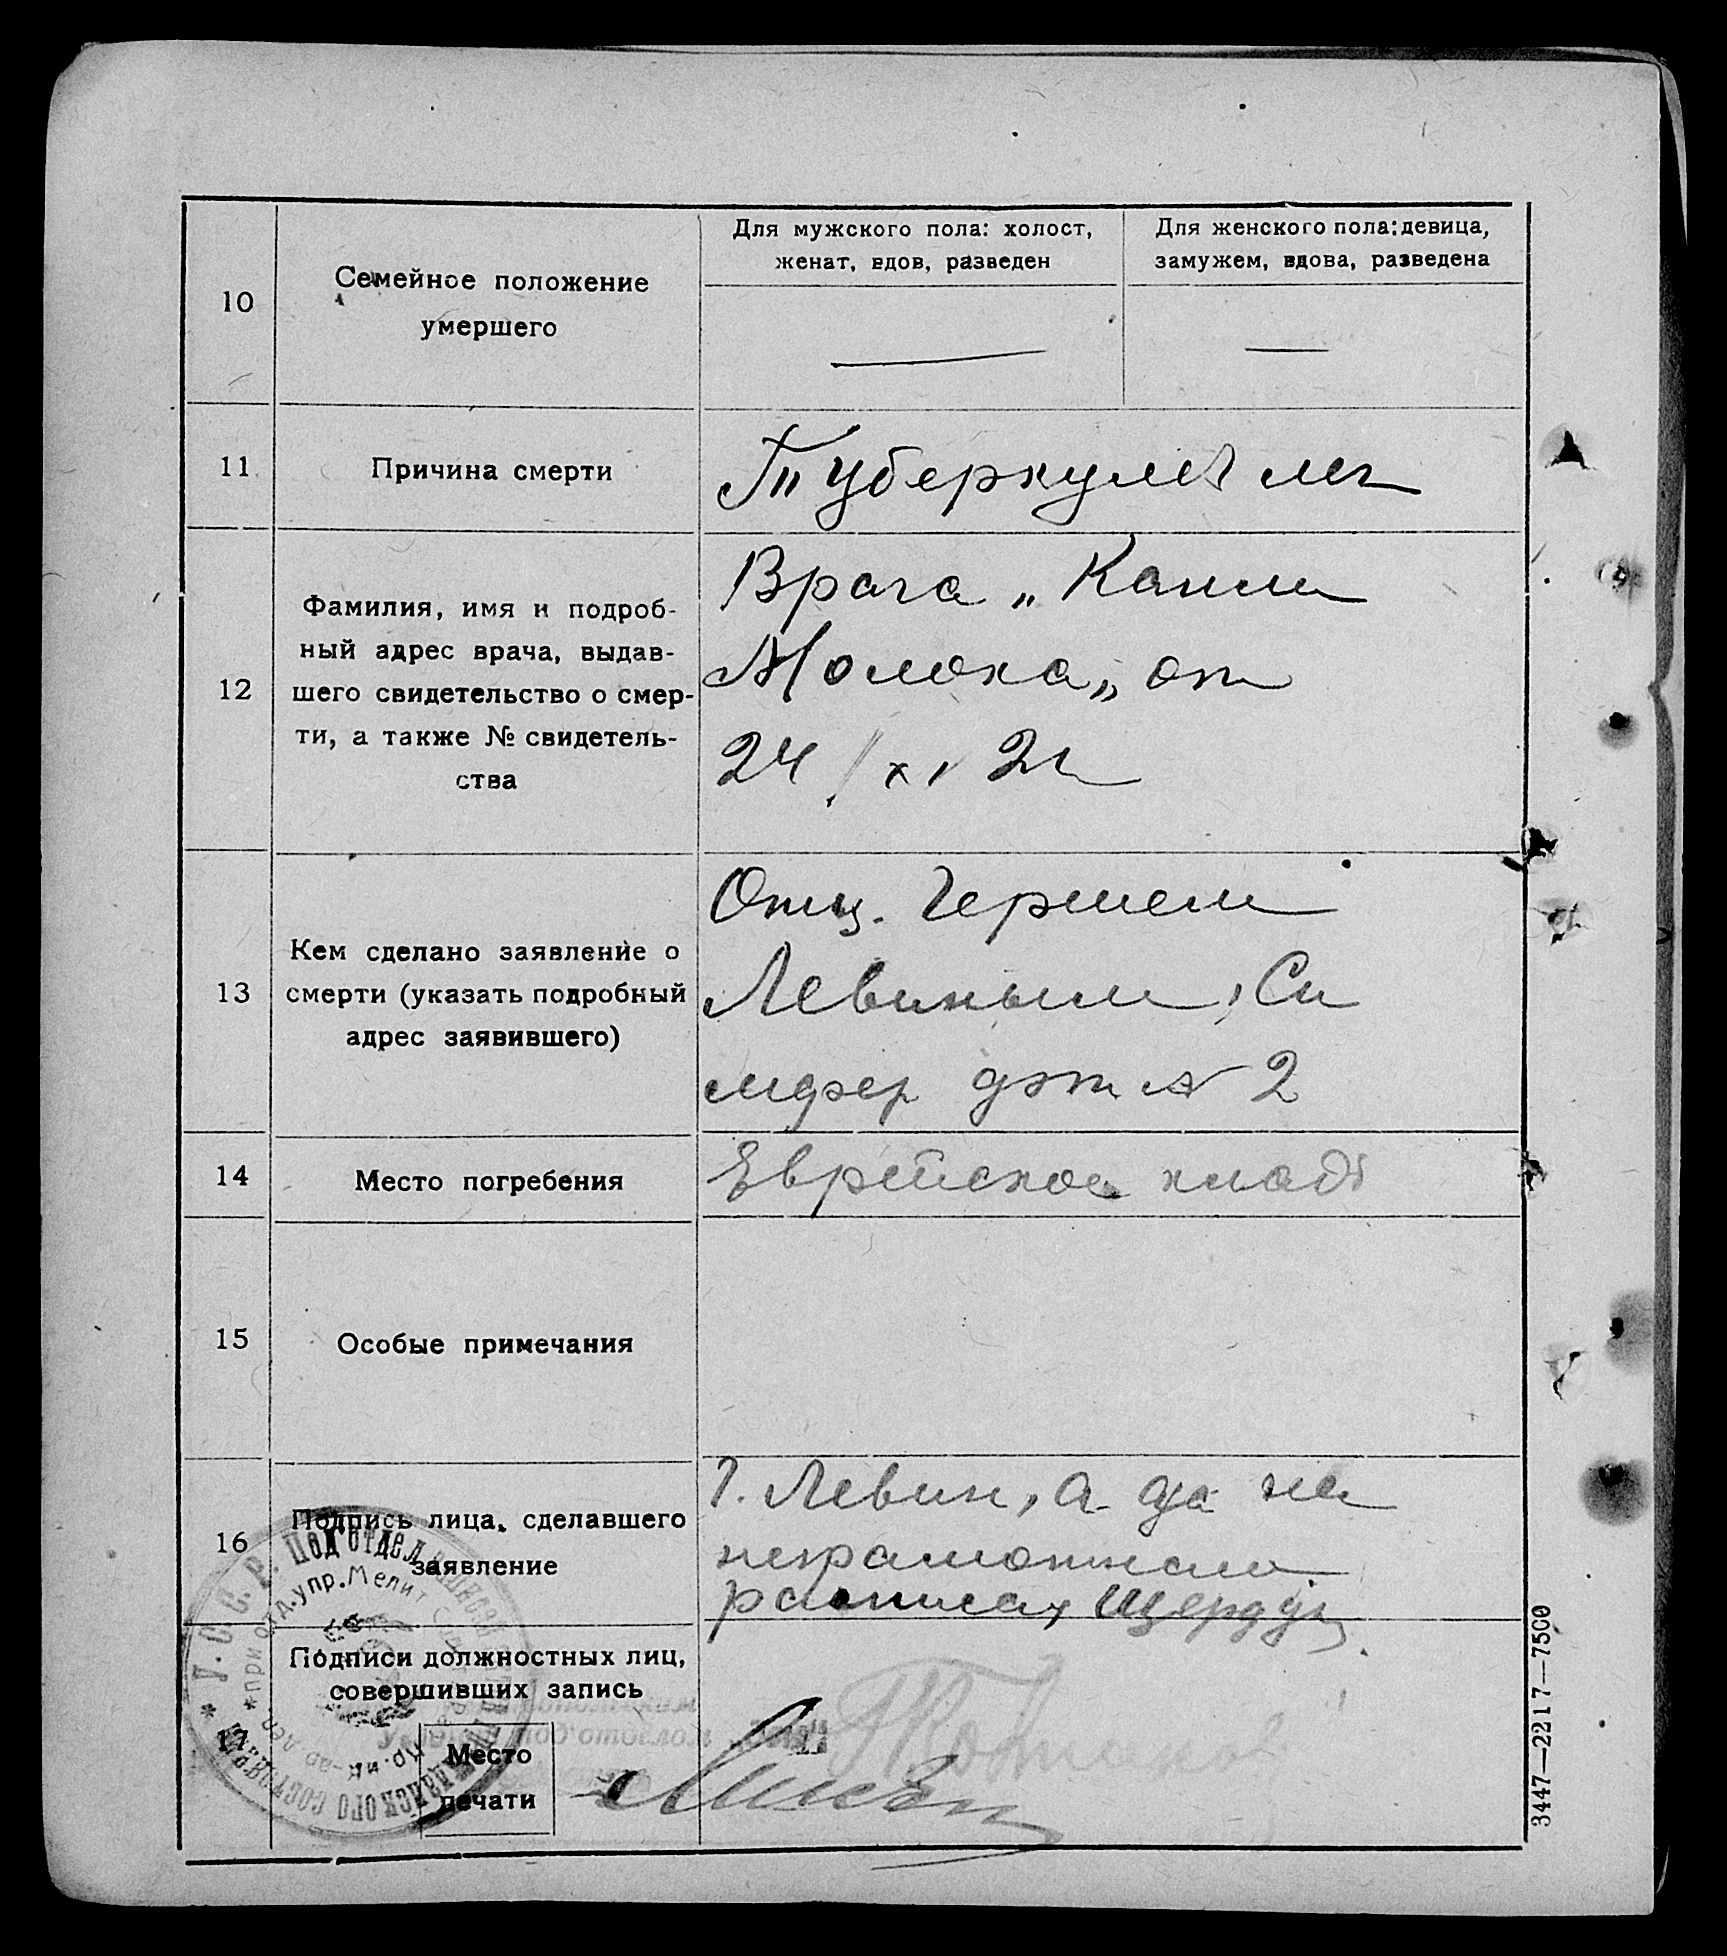 10
Семейное положение
умершего
Для мужского пола: холост,
женат, вдов, разведен
Для женского пола: девица,
замужем, вдова, разведена
11
Причина смерти
Туберкулез лег
12
Фамилия, имя и подроб-
ный адрес врача, выдав-
шего свидетельство о смер-
ти, а также № свидетель-
ства
Врача „Капли
Молока„ от
24/XI 2
13
Кем сделано заявление о
смерти (указать подробный
адрес заявившего)
Отц. Гершем
Левиным, Си
мфер № 2
14
Место погребения
Еврейское кладб
15
Особые примечания
16
Подпись лица, сделавшего
заявление
Г. Левин, а за не
неграмотного
распис
17
Подписи должностных лиц,
совершивших запись
Место
печати
У. С. С. Р. Под'отдел
при отд. упр. Мелит
3447—2217—7500